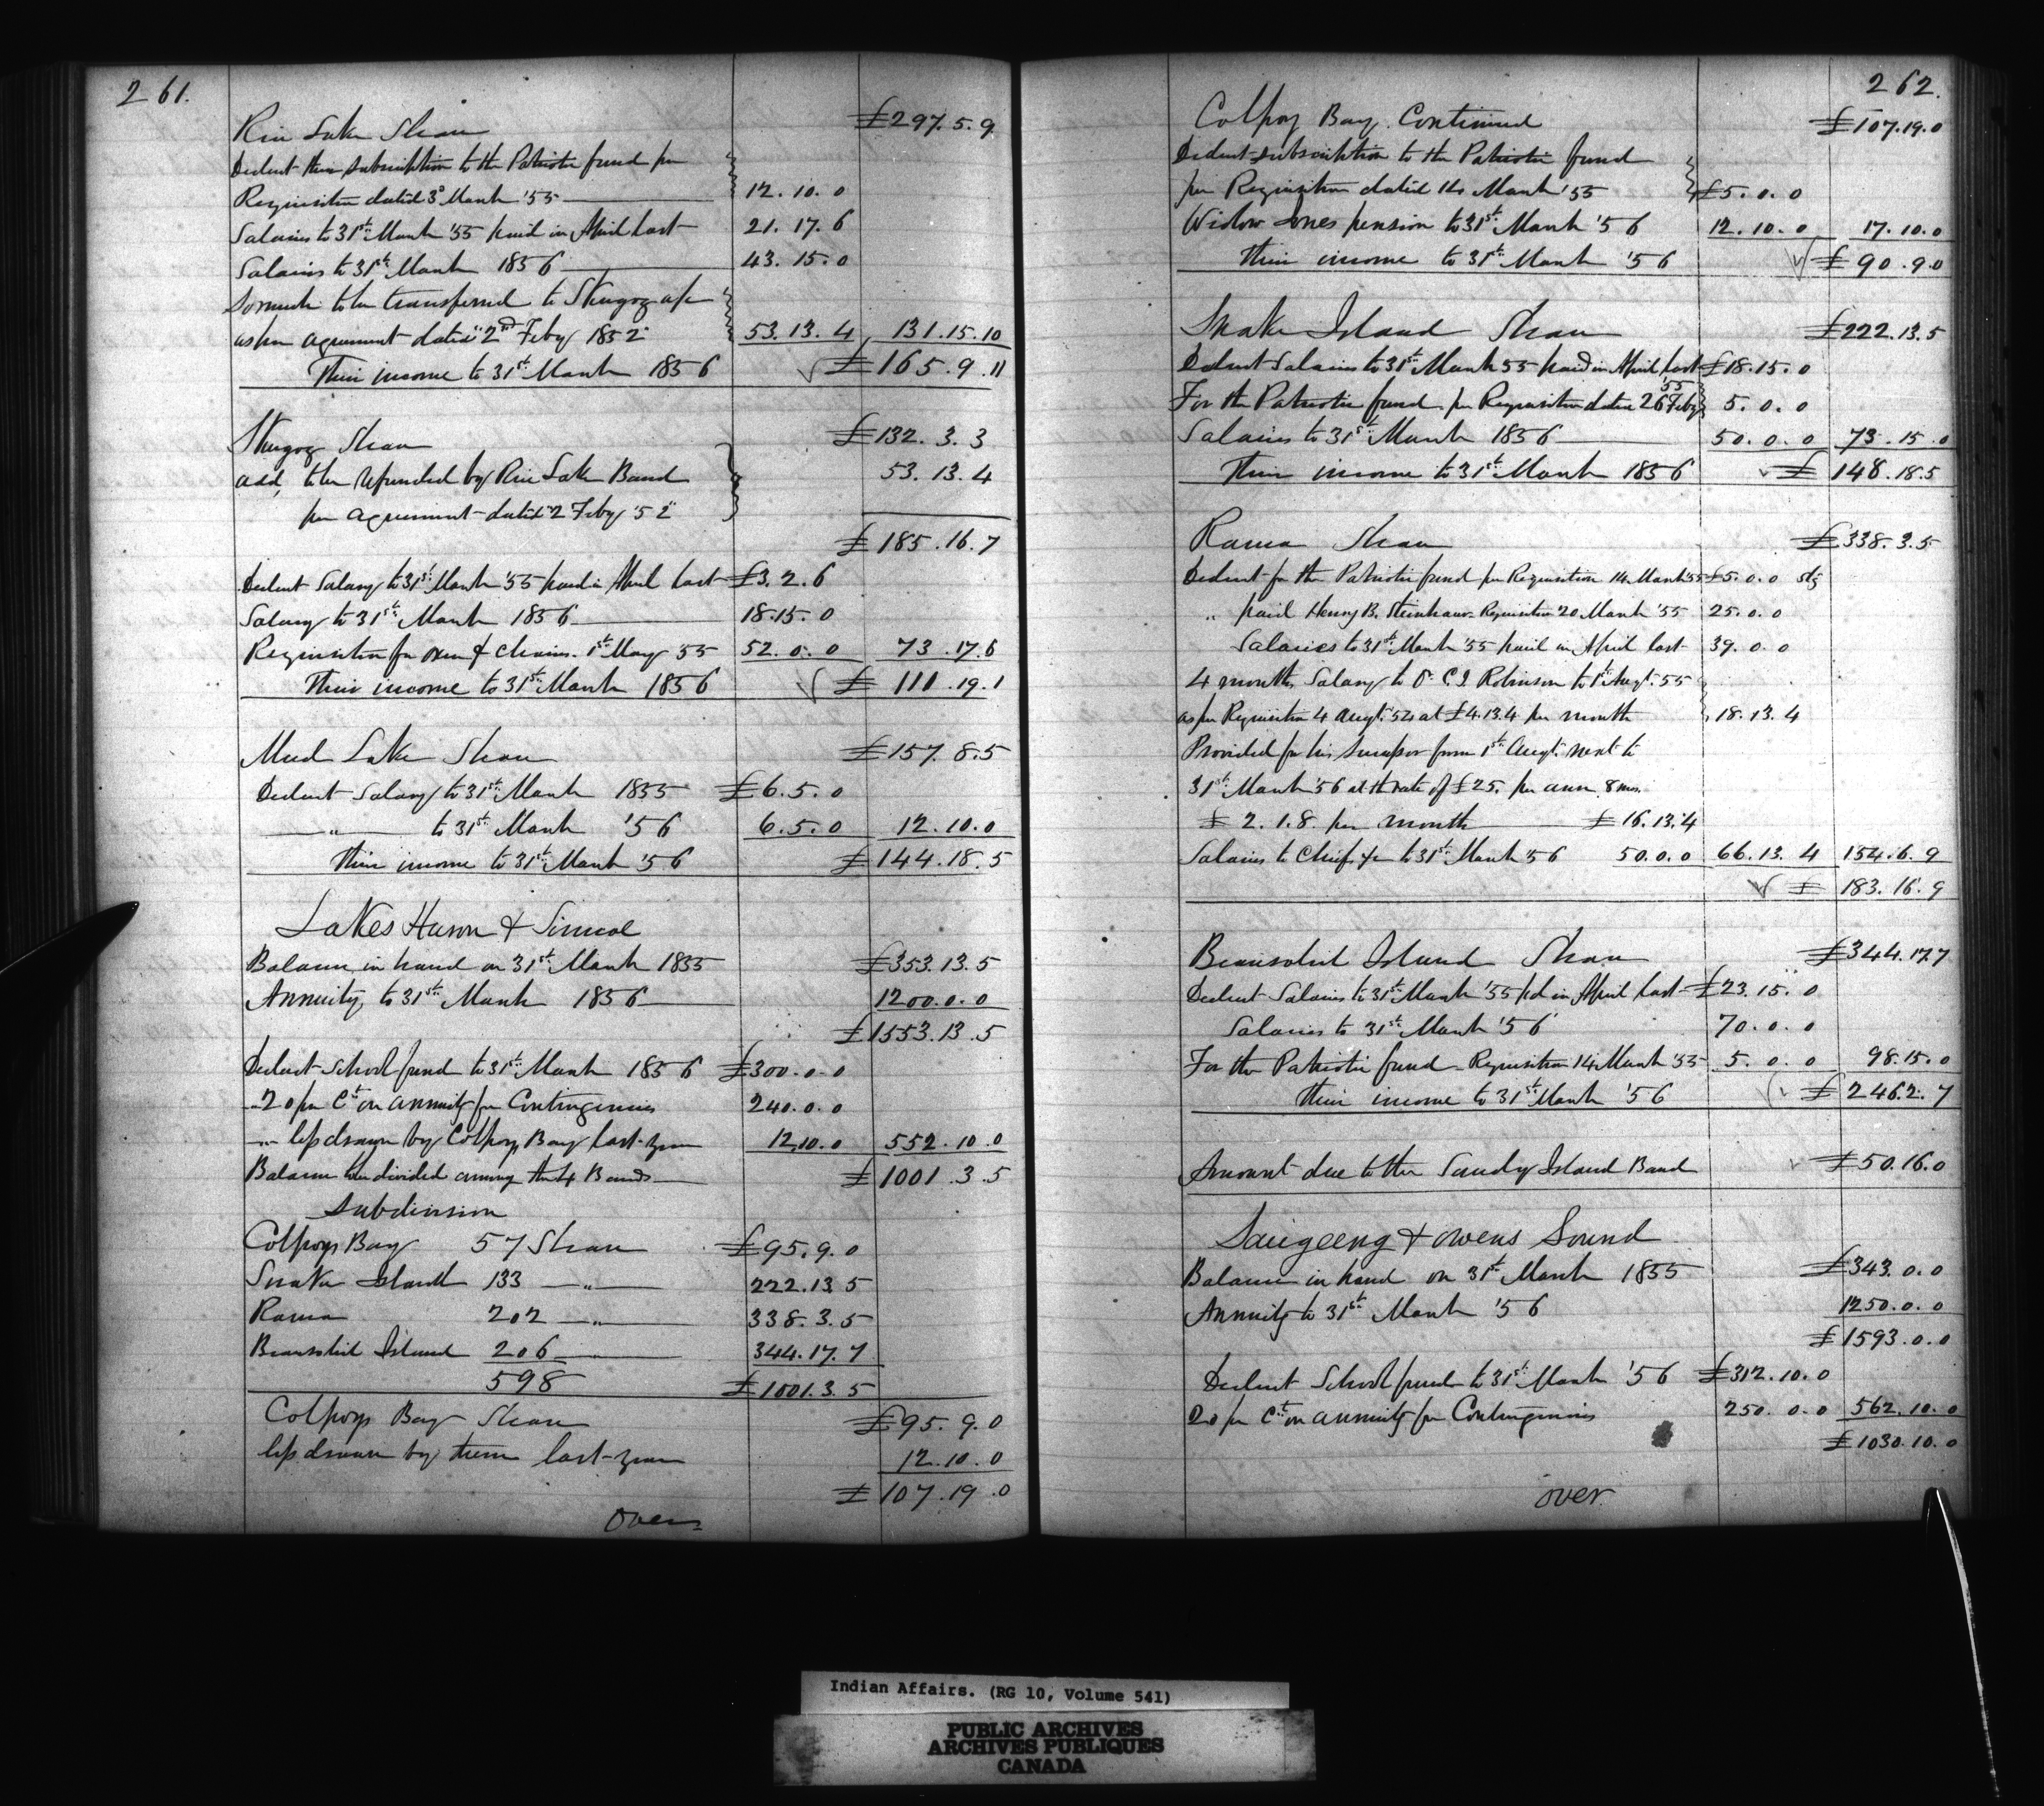 261.
Rice Lake Share £297.5.9
Deduct their subscription to the Patriotic fund per
Requisition dated 3d March '55 12.10.0
Salaries to 31st March '55 paid in April last 21.17.6
Salaries to 31st March 1856 43.15.0
So much to be transferred to Skugog a/c
as per agreement dated 2nd Feby 1852 53.13.4 131.15.10
Their income to 31st March 1856 £165.9.11
Skugog Share £132.3.3
add, to be refunded by Rice Lake Band 53.13.4
per agreement dated 2 Feby '52
£185.16.7
Deduct Salary to 31st March '55 paid in April last £3.2.6
Salary to 31st March 1856 18.15.0
Requisition for oxen & chains 1st May 55 52.0.0 73.17.6
Their income to 31st March 1856 £111.19.1
Mud Lake Share £157.8.5
Deduct Salary to 31st March 1855 £6.5.0
" to 31st March '56 6.5.0 12.10.0
Their income to 31st March '56 £144.18.5
Lakes Huron & Simcoe
Balance in hand on 31st March 1855 £353.13.5
Annuity to 31st March 1856 1200.0.0
£1553.13.5
Deduct School fund to 31st March 1856 £300.0.0
" 20 per Ct on annuity for Contingencies 240.0.0
" less drawn by Colpoys Bay last year 12.10.0 552.10.0
Balance to be divided among the 4 Bands £1001.3.5
Subdivision
Colpoys Bay 57 Share £95.9.0
Snake Island 133 " 222.13.5
Rama 202 " 338.3.5
Beausoleil Island 206 344.17.7
598 £1001.3.5
Colpoys Bay Share £95.9.0
less drawn by them last year 12.10.0
£107.19.0
over
262.
Colpoy Bay Continued £107.19.0
Deduct subscription to the Patriotic fund
per Requisition dated 14 March '55 £5.0.0
Widow Jones pension to 31st March '56 12.10.0 17.10.0
Their income to 31st March '56 £90.9.0
Snake Island Share £222.13.5
Deduct Salaries to 31st March 55 paid in April last £18.15.0
For the Patriotic fund per Requisition dated 26 Feby '55 5.0.0
Salaries to 31st March 1856 50.0.0 73.15.0
Their income to 31st March 1856 £148.18.5
Rama Share £338.3.5
Deduct for the Patriotic fund per Requisition 14 March 55 £5.0.0 stg
" paid Henry B. Steinhaur Requisition 20 March '55 25.0.0
Salaries to 31st March '55 paid in April last 39.0.0
4 months Salary to C. I. Robinson to 1st Augt. 55
as per Requisition 4 Augt. 54 at £4.13.4 per month 18.13.4
Provided for his successor from 1st Augt. next to
31st March '56 at the rate of £25. per ann 8 mos.
£2.1.8. per month £16.13.4
Salaries to Chiefs &c to 31st March '56 50.0.0 66.13.4 154.6.9
£183.16.9
Beausoleil Island Share £344.17.7
Deduct Salaries to 31st March '55 pd in April last £23.15.0
Salaries to 31st March '56 70.0.0
For the Patriotic fund Requisition 14 March '55 5.0.0 98.15.0
Their income to 31st March '56 £246.2.7
Amount due to the Sandy Island Band £50.16.0
Saugeeng & Owens Sound
Balance in hand on 31st March 1855 £343.0.0
Annuity to 31st March '56 1250.0.0
£1593.0.0
Deduct School fund to 31st March '56 £312.10.0
20 per Ct on annuity for Contingencies 250.0.0 562.10.0
£1030.10.0
over.
Indian Affairs. (RG 10, Volume 541)
PUBLIC ARCHIVES
ARCHIVES PUBLIQUES
CANADA